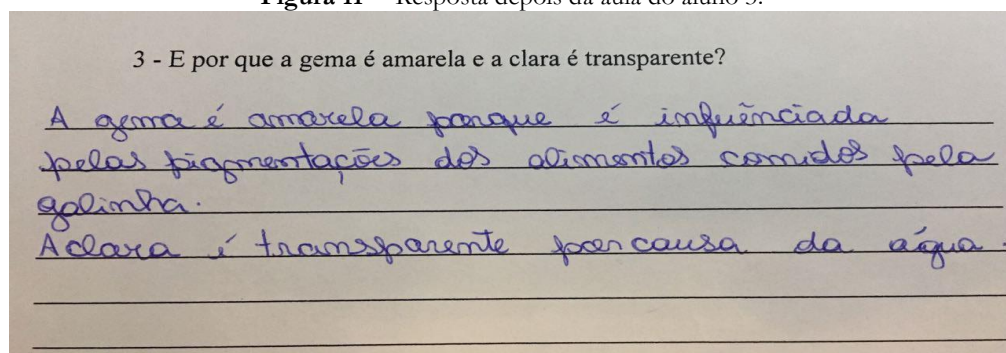 Figura 11 – Resposta depois da aula do aluno 3.
3 - E por que a gema é amarela e a clara é transparente?
A gema é amarela porque é infuênciada
pelas pigmentações dos alimentos comidos pela
galinha.
A clara é transparente por causa da água.